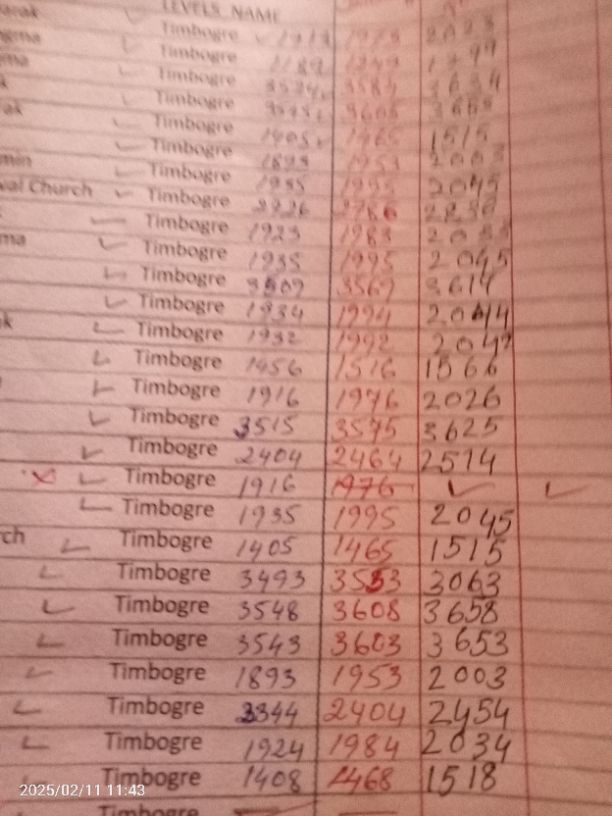 LEVELS NAME
Timbogre
ngma Timbogre
ma Timbogre 3584
Timbogre
ak Timbogre 1405 1465 1515
Timbogre 1893 1953 2003
min Timbogre 1935 1995 2045
val Church Timbogre 2726 2786
Timbogre 1923 1983
ma Timbogre 1935 1995 2045
Timbogre 3509 3569 3614
Timbogre 1934 1994
k Timbogre 1932 1992 2042
Timbogre 1456 1516 1566
Timbogre 1916 1976 2026
Timbogre 3515 3575 3625
Timbogre 2404 2464 2514
Timbogre 1916 1976
Timbogre 1935 1995 2045
rch Timbogre 1405 1465 1515
Timbogre 3493 3553 3063
Timbogre 3548 3608 3658
Timbogre 3543 3603 3653
Timbogre 1893 1953 2003
Timbogre 3344 2404 2454
Timbogre 1924 1984 2034
Timbogre 1408 1468 1518
Timbogre
2025/02/11 11:43